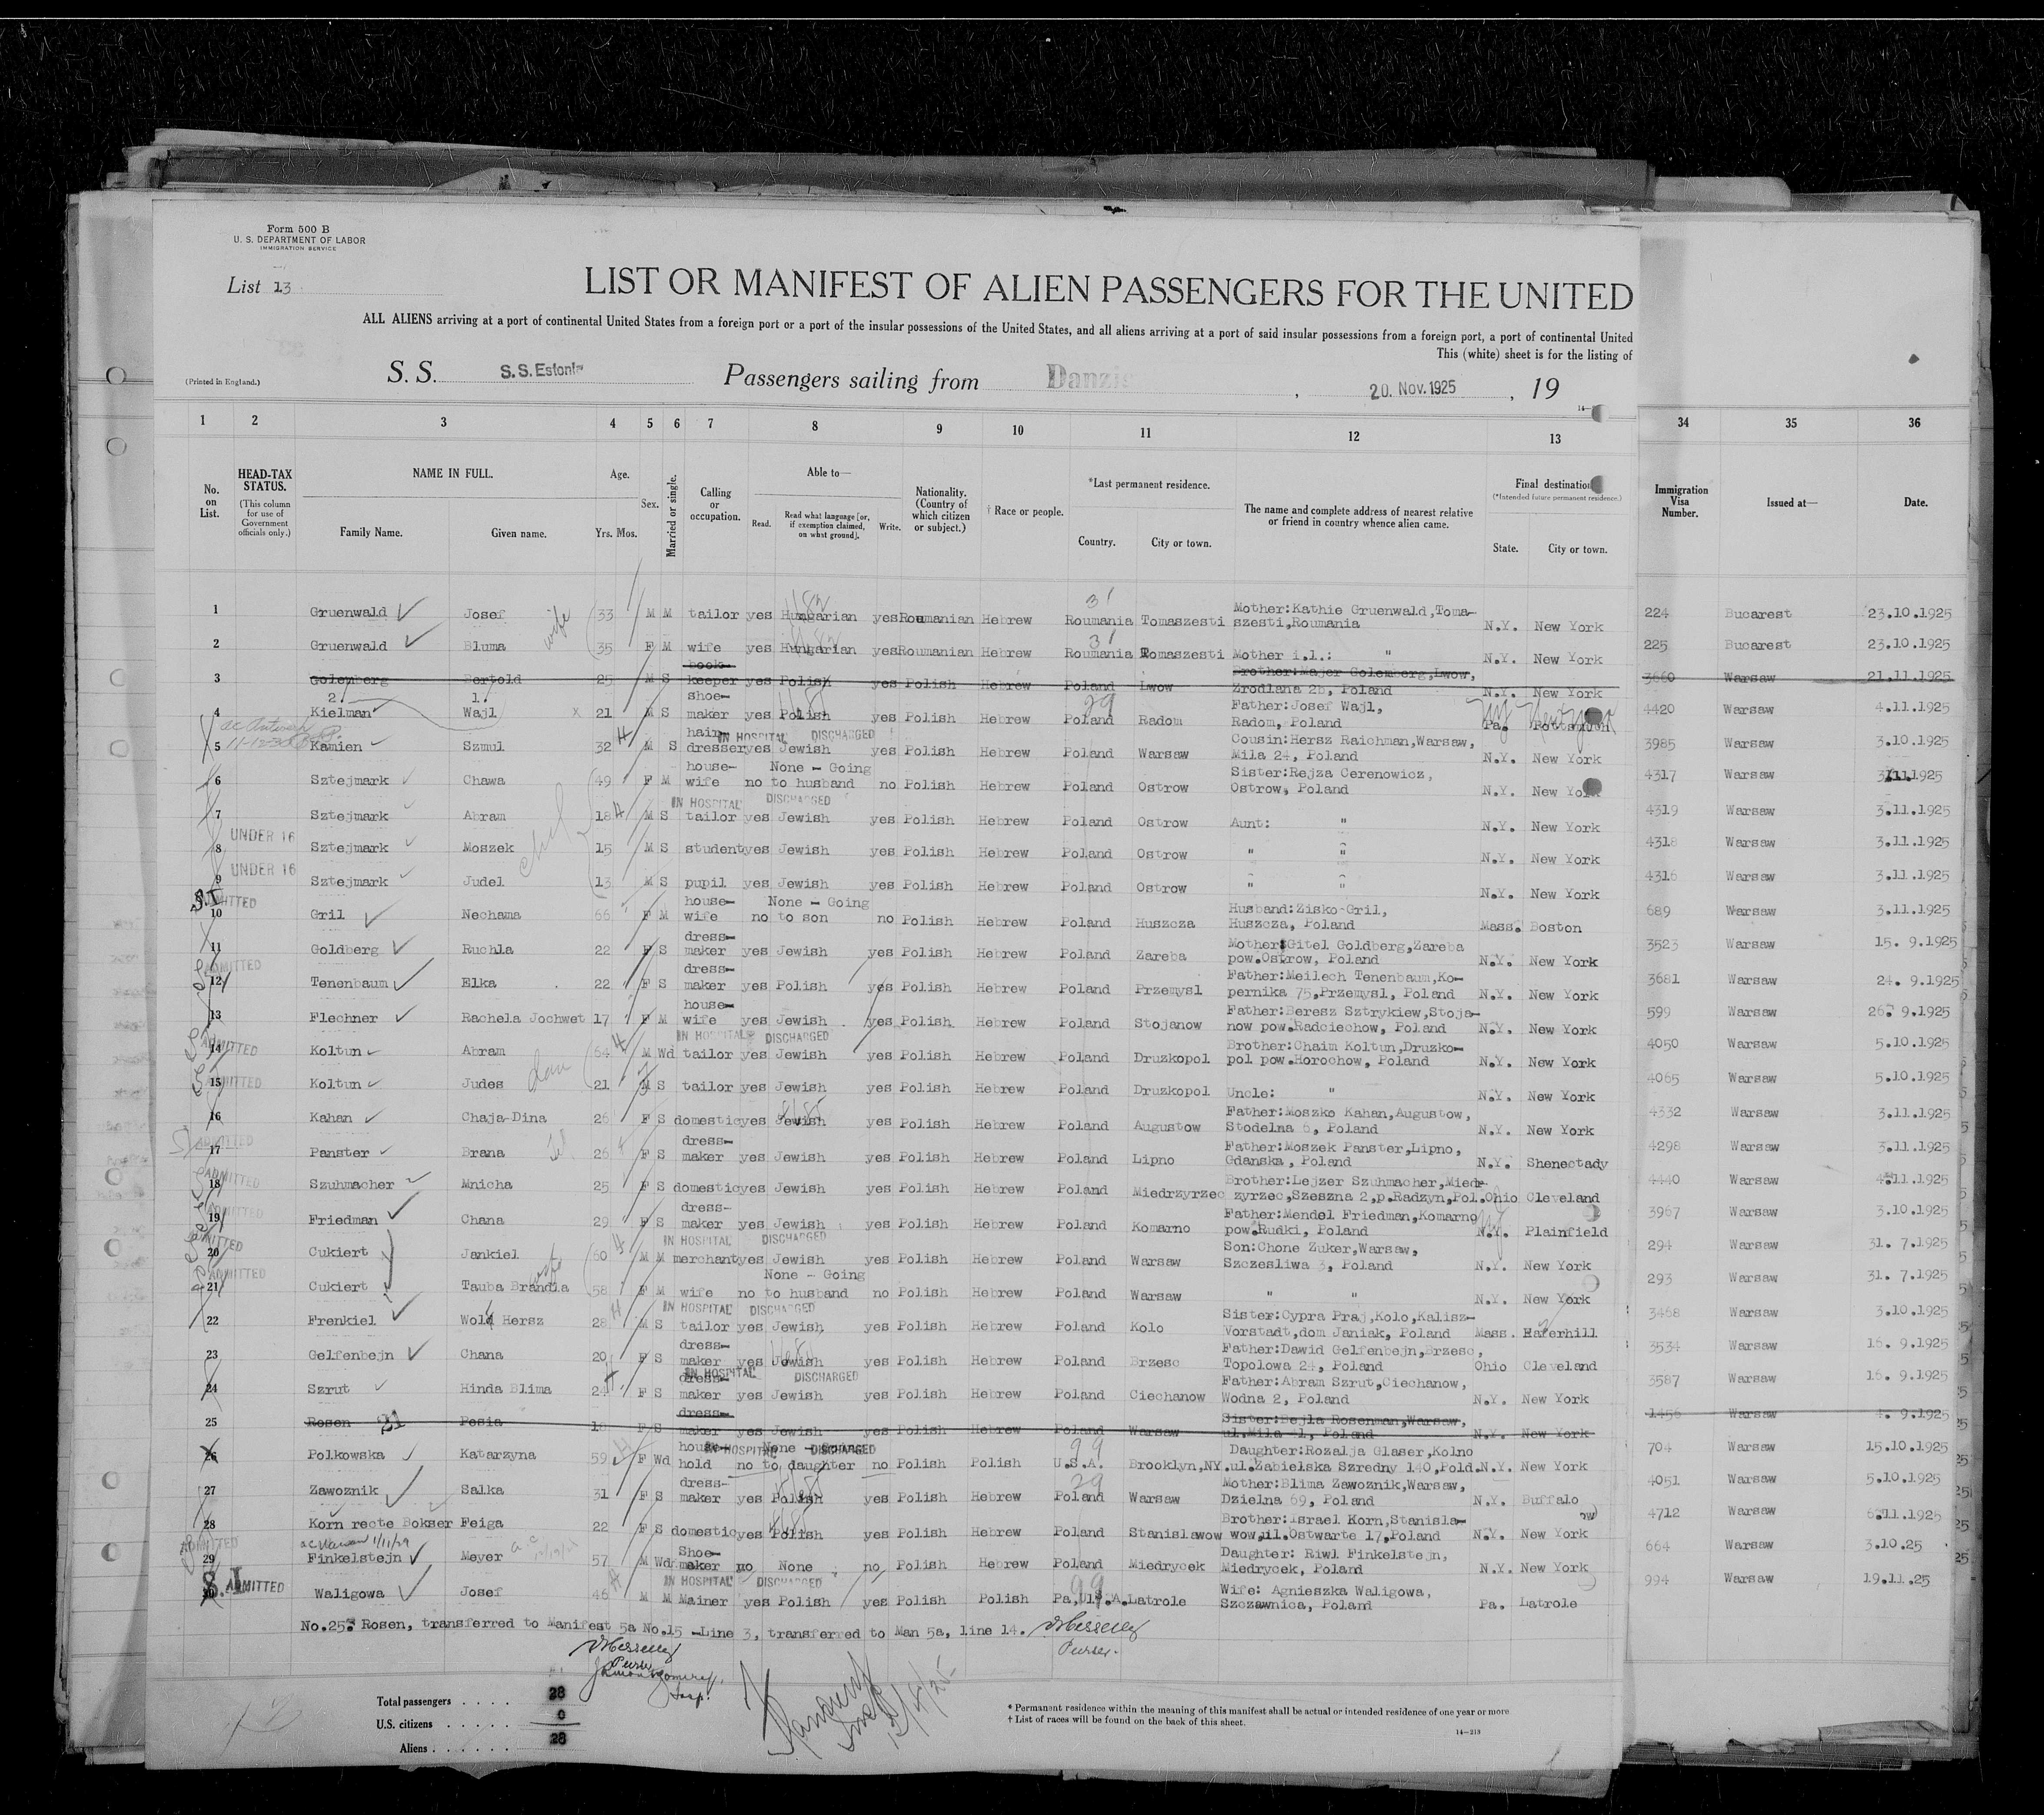 Form 500 B
U. S. DEPARTMENT OF LABOR
IMMIGRATION SERVICE
List 13
LIST OR MANIFEST OF ALIEN PASSENGERS FOR THE UNITED
ALL ALIENS arriving at a port of continental United States from a foreign port or a port of the insular possessions of the United States, and all aliens arriving at a port of said insular possessions from a foreign port, a port of continental United
This (white) sheet is for the listing of
(Printed in England.)
S. S. S.S. Estonia Passengers sailing from Danzig, 20. Nov. 1925, 19
1 2 3 4 5 6 7 8 9 10 11 12 13 34 35 36
No. on List.
HEAD-TAX STATUS. (This column for use of Government officials only.)
NAME IN FULL. Family Name. Given name.
Age. Yrs. Mos.
Sex.
Married or single.
Calling or occupation.
Able to— Read. Read what language [or, if exemption claimed, on what ground]. Write.
Nationality. (Country of which citizen or subject.)
† Race or people.
*Last permanent residence. Country. City or town.
The name and complete address of nearest relative or friend in country whence alien came.
Final destination (*Intended future permanent residence.) State. City or town.
Immigration Visa Number.
Issued at—
Date.
1 Gruenwald Josef 33 M M tailor yes Hungarian yes Roumanian Hebrew Roumania Tomaszesti Mother:Kathie Gruenwald,Toma-szesti,Roumania N.Y. New York 224 Bucarest 23.10.1925
2 Gruenwald Bluma wife 35 F M wife yes Hungarian yes Roumanian Hebrew Roumania Tomaszesti Mother i.l.: " N.Y. New York 225 Bucarest 23.10.1925
3 Golemberg Bertold 25 M S book-keeper yes Polish yes Polish Hebrew Poland Lwow Brother:Majer Golemberg,Lwow, Zrodlana 2b, Poland N.Y. New York 3660 Warsaw 21.11.1925
4 Kielman Wajl 21 M S shoe-maker yes Polish yes Polish Hebrew Poland Radom Father:Josef Wajl, Radom, Poland Pa. 4420 Warsaw 4.11.1925
5 Kamien Szmul 32 M S hair-dresser yes Jewish yes Polish Hebrew Poland Warsaw Cousin:Hersz Raichman,Warsaw, Mila 24, Poland N.Y. New York 3985 Warsaw 3.10.1925
IN HOSPITAL DISCHARGED
6 Sztejmark Chawa 49 F M house-wife no None - Going to husband no Polish Hebrew Poland Ostrow Sister:Rejza Cerenowicz, Ostrow, Poland N.Y. New York 4317 Warsaw 3.11.1925
IN HOSPITAL DISCHARGED
7 Sztejmark Abram 18 M S tailor yes Jewish yes Polish Hebrew Poland Ostrow Aunt: " N.Y. New York 4319 Warsaw 3.11.1925
UNDER 16
8 Sztejmark Moszek 15 M S student yes Jewish yes Polish Hebrew Poland Ostrow " " N.Y. New York 4318 Warsaw 3.11.1925
UNDER 16
9 Sztejmark Judel 13 M S pupil yes Jewish yes Polish Hebrew Poland Ostrow " " N.Y. New York 4316 Warsaw 3.11.1925
S.I. ADMITTED
10 Gril Nechama 66 F M house-wife no None - Going to son no Polish Hebrew Poland Huszcza Husband:Zisko-Gril, Huszcza, Poland Mass. Boston 689 Warsaw 3.11.1925
11 Goldberg Ruchla 22 F S dress-maker yes Jewish yes Polish Hebrew Poland Zareba Mother:Gitel Goldberg,Zareba pow.Ostrow, Poland N.Y. New York 3523 Warsaw 15. 9.1925
ADMITTED
12 Tenenbaum Elka 22 F S dress-maker yes Polish yes Polish Hebrew Poland Przemysl Father:Meilech Tenenbaum,Ko-pernika 75,Przemysl, Poland N.Y. New York 3681 Warsaw 24. 9.1925
13 Flechner Rachela Jochwet 17 F M house-wife yes Jewish yes Polish Hebrew Poland Stojanow Father:Beresz Sztrykiew,Stoja-now pow.Radciechow, Poland N.Y. New York 599 Warsaw 26. 9.1925
IN HOSPITAL DISCHARGED
ADMITTED
14 Koltun Abram 64 M Wd tailor yes Jewish yes Polish Hebrew Poland Druzkopol Brother:Chaim Koltun,Druzko-pol pow.Horochow, Poland N.Y. New York 4050 Warsaw 5.10.1925
ADMITTED
15 Koltun Judes 21 M S tailor yes Jewish yes Polish Hebrew Poland Druzkopol Uncle: " N.Y. New York 4065 Warsaw 5.10.1925
16 Kahan Chaja-Dina 26 F S domestic yes Jewish yes Polish Hebrew Poland Augustow Father:Moszko Kahan,Augustow, Stodelna 6, Poland N.Y. New York 4332 Warsaw 3.11.1925
ADMITTED
17 Panster Brana 26 F S dress-maker yes Jewish yes Polish Hebrew Poland Lipno Father:Moszek Panster,Lipno, Gdanska, Poland N.Y. Shenectady 4298 Warsaw 3.11.1925
ADMITTED
18 Szuhmacher Mnicha 25 F S domestic yes Jewish yes Polish Hebrew Poland Miedrzyrzec Brother:Lejzer Szuhmacher,Miedr-zyrzec,Szeszna 2,p.Radzyn,Pol. Ohio Cleveland 4440 Warsaw 4.11.1925
ADMITTED
19 Friedman Chana 29 F S dress-maker yes Jewish yes Polish Hebrew Poland Komarno Father:Mendel Friedman,Komarno pow.Rudki, Poland N.Y. Plainfield 3967 Warsaw 3.10.1925
IN HOSPITAL DISCHARGED
ADMITTED
20 Cukiert Jankiel 60 M M merchant yes Jewish yes Polish Hebrew Poland Warsaw Son:Chone Zuker,Warsaw, Szczesliwa 3, Poland N.Y. New York 294 Warsaw 31. 7.1925
ADMITTED
21 Cukiert Tauba Brandla wife 58 F M wife no None - Going to husband no Polish Hebrew Poland Warsaw " " N.Y. New York 293 Warsaw 31. 7.1925
IN HOSPITAL DISCHARGED
22 Frenkiel Wolf Hersz 28 M S tailor yes Jewish yes Polish Hebrew Poland Kolo Sister:Cypra Praj,Kolo,Kalisz-Vorstadt,dom Janiak, Poland Mass. Haferhill 3468 Warsaw 3.10.1925
23 Gelfenbejn Chana 20 F S dress-maker yes Jewish yes Polish Hebrew Poland Brzesc Father:Dawid Gelfenbejn,Brzesc, Topolowa 24, Poland Ohio Cleveland 3534 Warsaw 16. 9.1925
IN HOSPITAL DISCHARGED
24 Szrut Hinda Blima 24 F S dress-maker yes Jewish yes Polish Hebrew Poland Ciechanow Father:Abram Szrut,Ciechanow, Wodna 2, Poland N.Y. New York 3587 Warsaw 16. 9.1925
25 Rosen Pesia 18 F S dress-maker yes Jewish yes Polish Hebrew Poland Warsaw Sister:Bejla Rosenman,Warsaw, ul.Mila 41, Poland N.Y. New York 1456 Warsaw 4. 9.1925
IN HOSPITAL DISCHARGED
26 Polkowska Katarzyna 59 F Wd house-hold no None - Going to daughter no Polish Polish U.S.A. Brooklyn,NY. Daughter:Rozalja Glaser,Kolno ul.Zabielska Szredny 140,Pold. N.Y. New York 704 Warsaw 15.10.1925
27 Zawoznik Salka 31 F S dress-maker yes Polish yes Polish Hebrew Poland Warsaw Mother:Blima Zawoznik,Warsaw, Dzielna 69, Poland N.Y. Buffalo 4051 Warsaw 5.10.1925
28 Korn recte Bokser Feiga 22 F S domestic yes Polish yes Polish Hebrew Poland Stanislawow Brother:Israel Korn,Stanisla-wow,ul.Ostwarte 17,Poland N.Y. New York 4712 Warsaw 6.11.1925
ADMITTED
29 Finkelstejn Meyer 57 M Wd Shoe-maker no None no Polish Hebrew Poland Miedrycek Daughter: Riwl Finkelstejn, Miedrycek, Poland N.Y. New York 664 Warsaw 3.10.25
IN HOSPITAL DISCHARGED
S.I. ADMITTED
30 Waligowa Josef 46 M M Mainer yes Polish yes Polish Polish Pa,U.S.A. Latrole Wife: Agnieszka Waligowa, Szczawnica, Poland Pa. Latrole 994 Warsaw 19.11.25
No.25: Rosen, transferred to Manifest 5a No.15 -Line 3, transferred to Man 5a, line 14.
Purser
Purser.
Insp.
Total passengers . . . . 28
U.S. citizens . . . . . 0
Aliens . . . . . . 28
12/4/25
* Permanent residence within the meaning of this manifest shall be actual or intended residence of one year or more.
† List of races will be found on the back of this sheet.
14—213